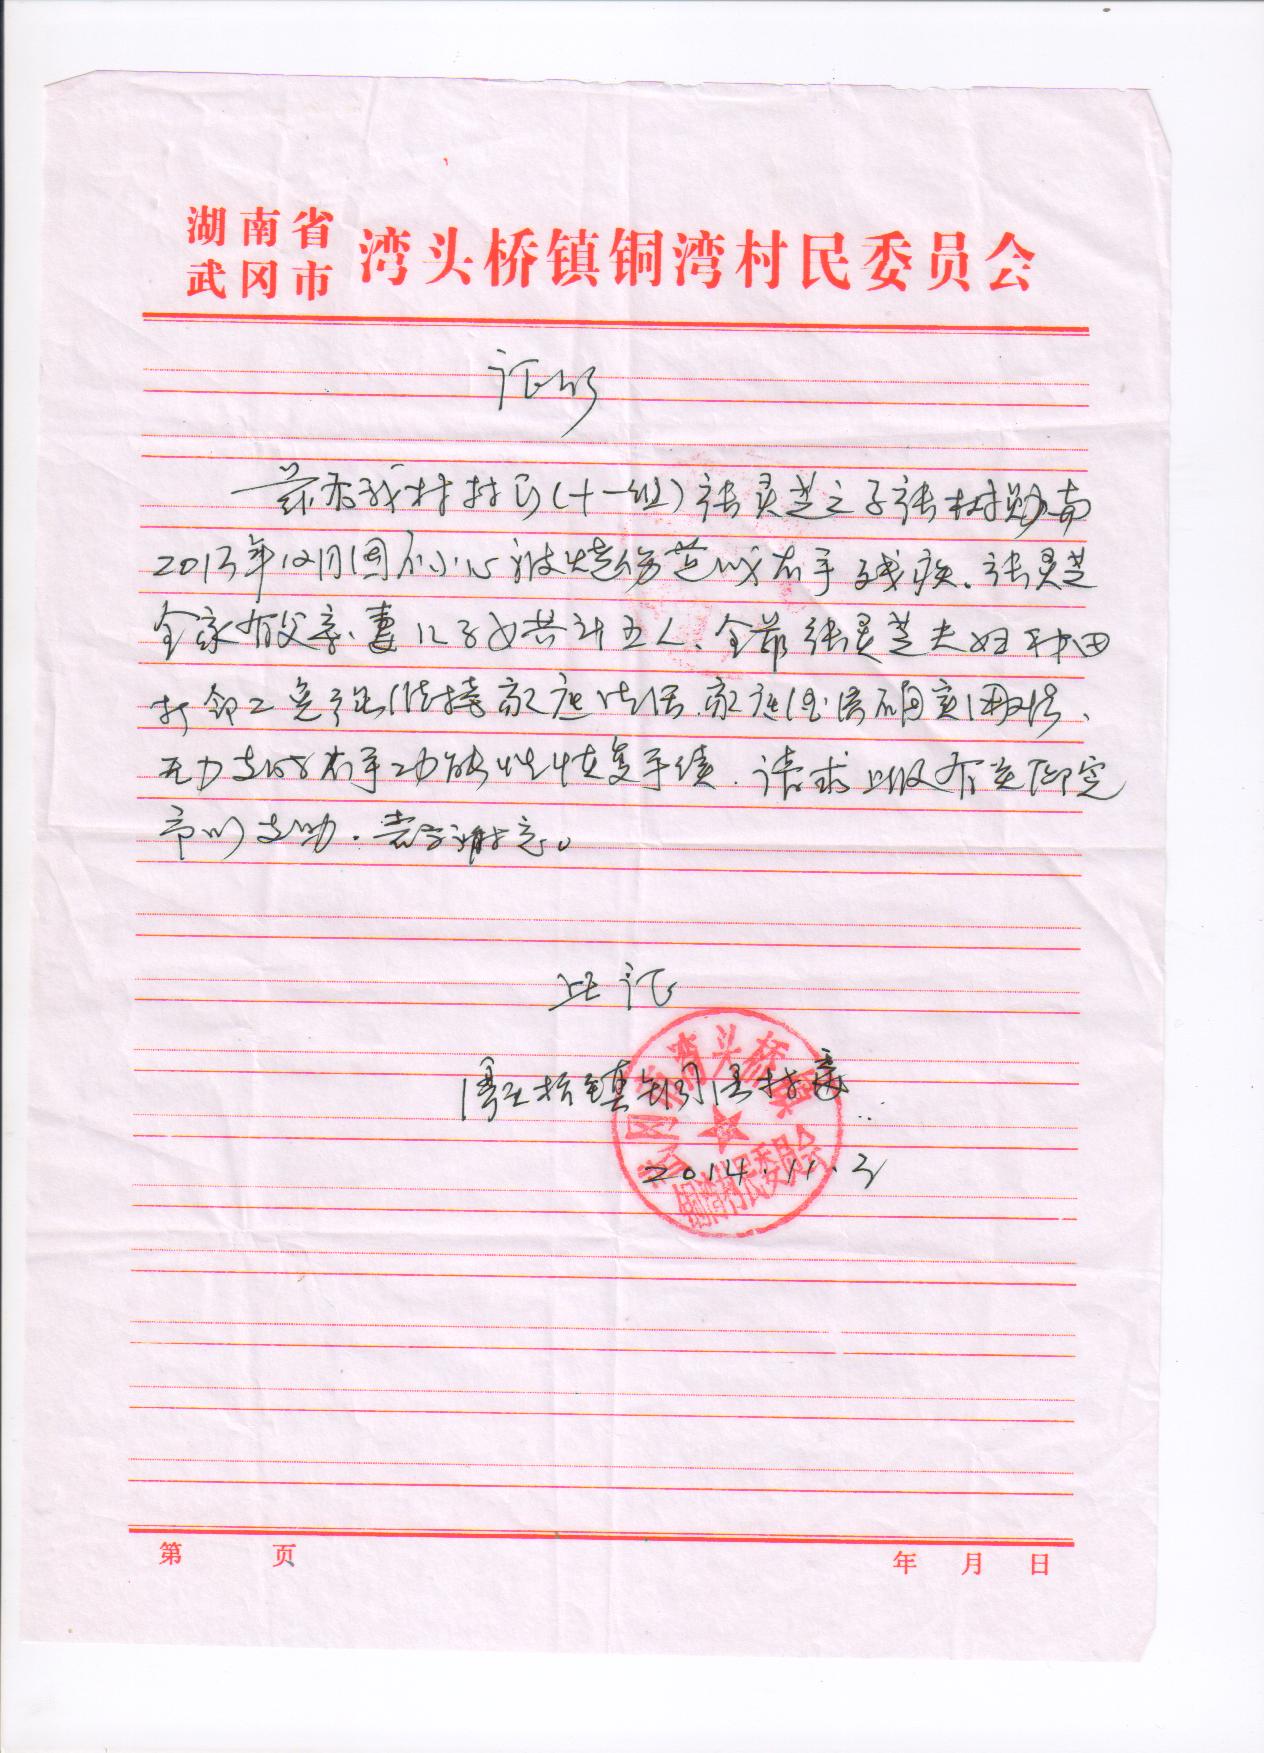 湖南省
武冈市
湾头桥镇铜湾村民委员会
证明
兹有我村村民(十一组)张灵芝之子张树勋,
2013年12月因不小心被烧伤造成右手残疾、张灵芝
全家有父亲、妻、儿子女共计五人、全靠张灵芝夫妇种田
打零工勉强维持家庭生活、家庭经济确实困难、
无力支付右手功能性恢复手续、请求上级有关部门
予以支助、
此证
湾头桥镇铜湾村委
2014.11.3
武冈市湾头桥镇
铜湾村民委员会
第 页
年 月 日